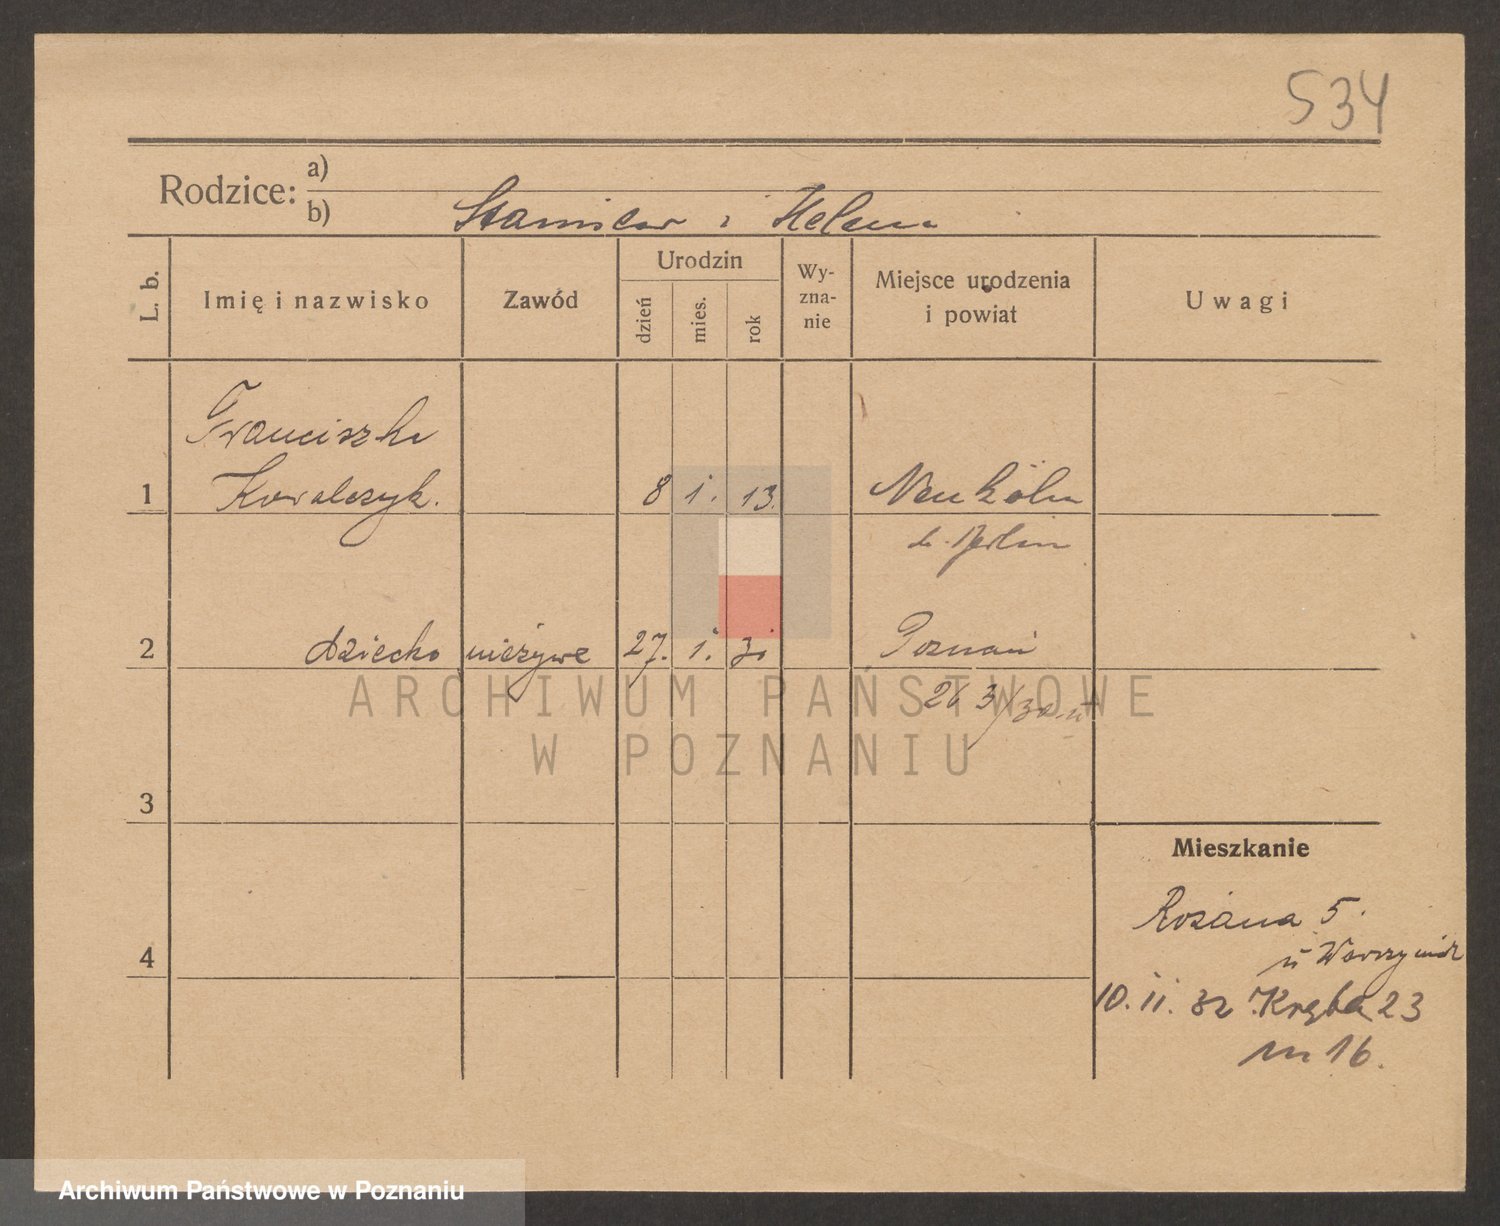 534
Rodzice: a)
b) Stanisław i Helena
L. b.
Imię i nazwisko
Zawód
Urodzin
dzień
mies.
rok
Wy-
zna-
nie
Miejsce urodzenia
i powiat
Uwagi
Franciszka
1 Kowalczyk. 8 1. 13. Neukölln
Berlin
2 dziecko nieżywe 27. 1. 30 Poznań
26 3/30
ARCHIWUM PAŃSTWOWE
W POZNANIU
3
Mieszkanie
Różana 5.
4 u Wawrzyniak
10. 11. 32 Kręta 23
m 16.
Archiwum Państwowe w Poznaniu